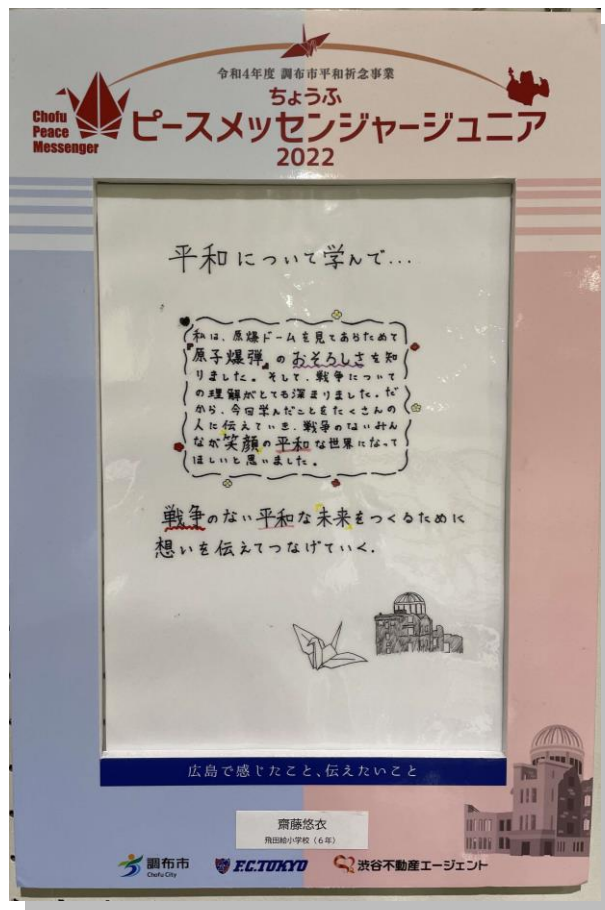 令和4年度 調布市平和祈念事業
ちょうふ
Chofu
Peace
Messenger
ピースメッセンジャージュニア
2022
平和について学んで...
私は、原爆ドームを見てあらためて
原子爆弾のおそろしさを知
りました。そして、戦争について
の理解がとても深まりました。だ
から、今回学んだことをたくさんの
人に伝えていき、戦争のないみん
なが笑顔の平和な世界になって
ほしいと思いました。
戦争のない平和な未来をつくるために
想いを伝えてつなげていく.
広島で感じたこと、伝えたいこと
齋藤悠衣
飛田給小学校（6年）
調布市
Chofu City
F.C.TOKYO
渋谷不動産エージェント